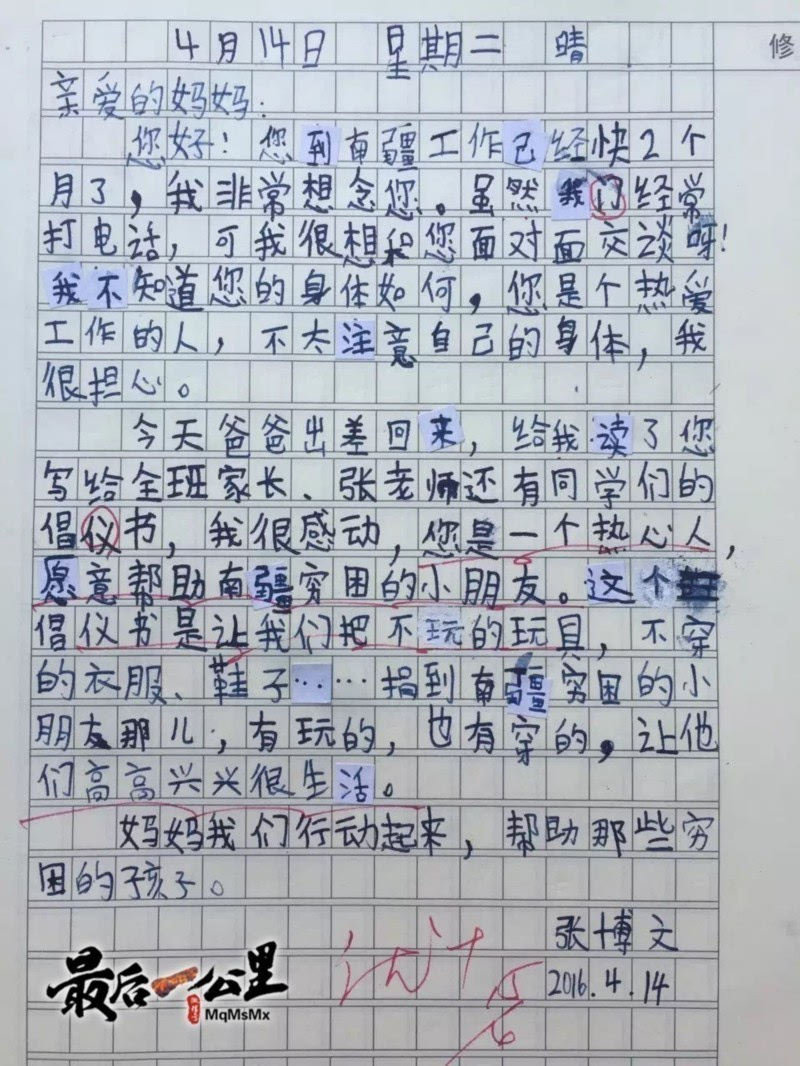 修
4月14日 星期二 晴
亲爱的妈妈:
您好!您到南疆工作已经快2个
月了,我非常想念您。虽然我们经常
打电话,可我很想和您面对面交谈呀!
我不知道您的身体如何,您是个热爱
工作的人,不太注意自己的身体,我
很担心。
今天爸爸出差回来,给我读了您
写给全班家长、张老师还有同学们的
倡仪书,我很感动,您是一个热心人,
愿意帮助南疆穷困的小朋友。这个
倡仪书是让我们把不玩的玩具,不穿
的衣服、鞋子……捐到南疆穷困的小
朋友那儿,有玩的,也有穿的,让他
们高高兴兴很生活。
妈妈我们行动起来,帮助那些穷
困的孩子。
张博文
2016.4.14
优+
15/6
最后一公里
MqMsMx